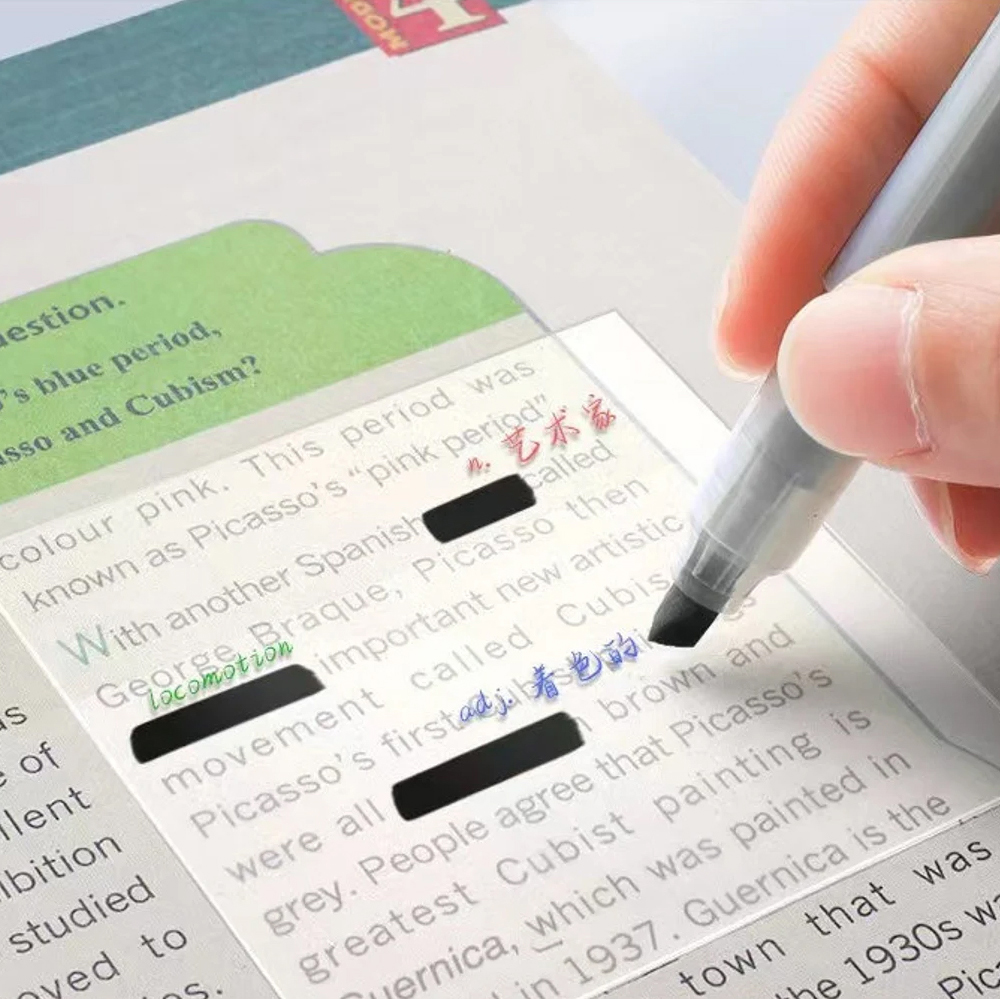 MODE
uestion.
's blue period,
sso and Cubism?
colour pink. This period was
known as Picasso's "pink period"
n. 艺术家
With another Spanish called
George Braque, Picasso then
locomotion
important new artistic
movement called Cubis
adj. 着色的
Picasso's first
were all brown and
grey. People agree that Picasso's
greatest Cubist painting is
Guernica, which was painted in
in 1937. Guernica is the
town that was
the 1930s
as
e of
llent
ibition
studied
oved to
es.